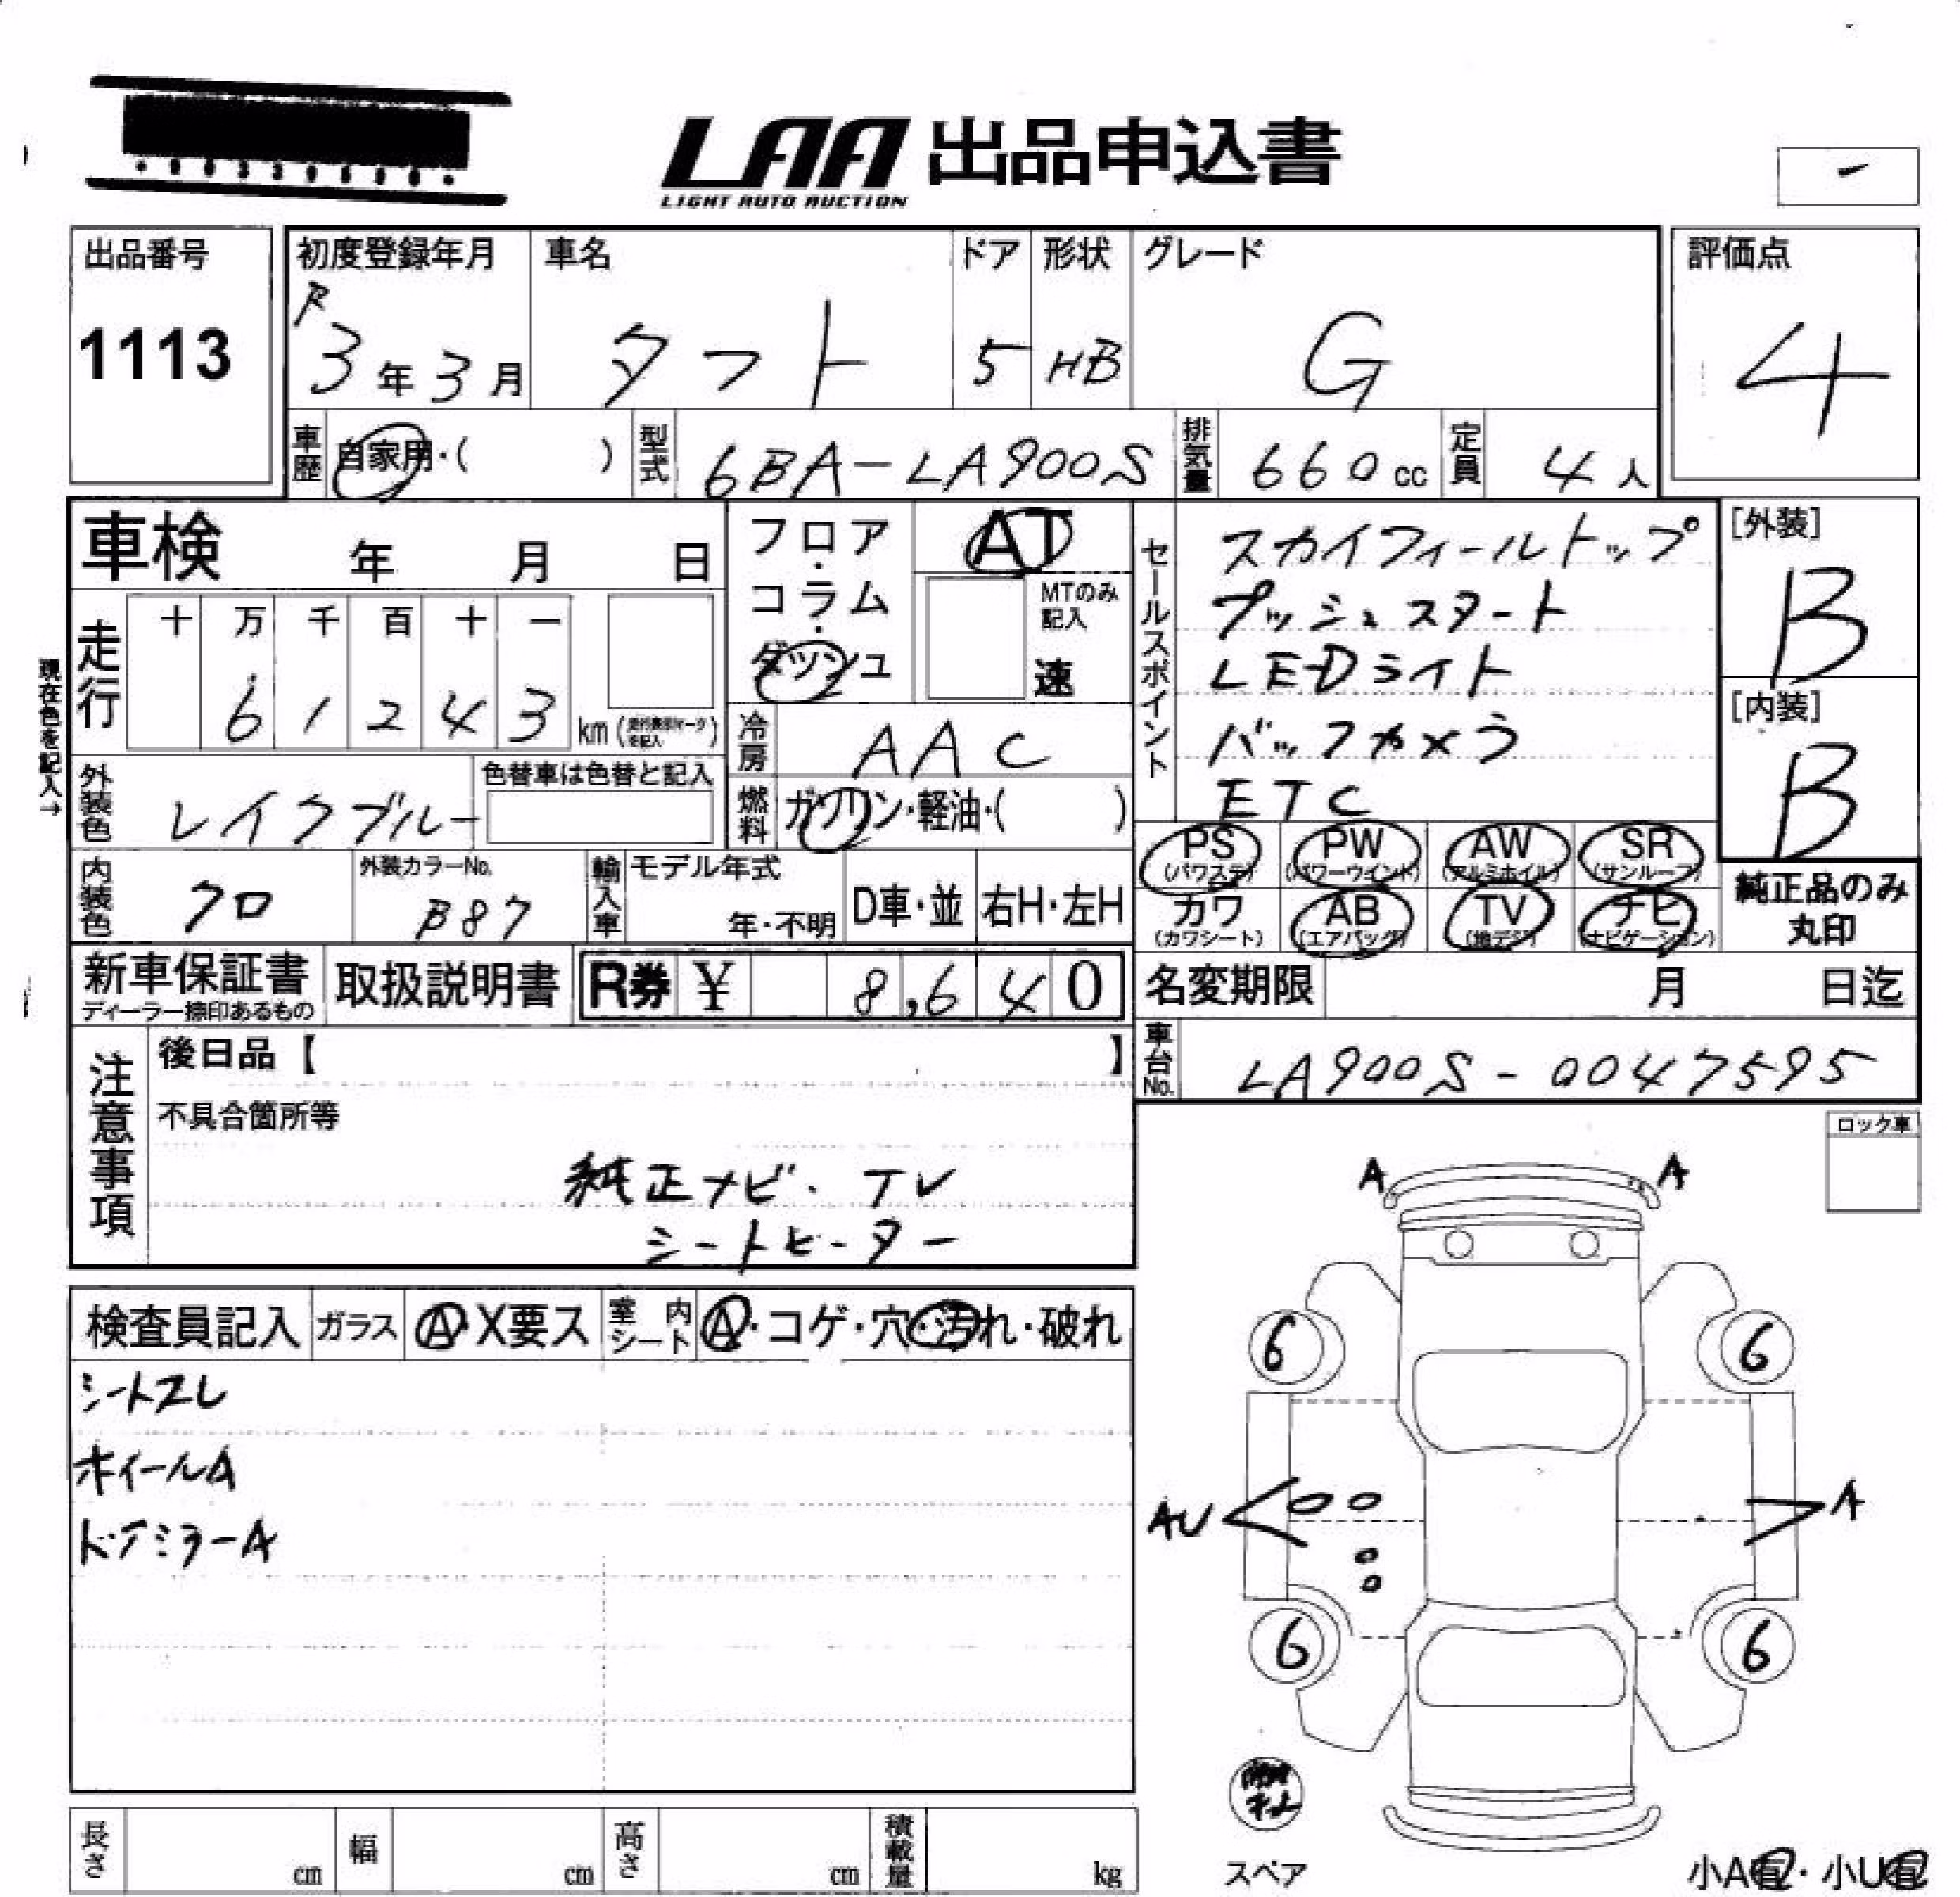 LAA 出品申込書
LIGHT AUTO AUCTION
-
出品番号 初度登録年月 車名 ドア 形状 グレード 評価点
1113 R 3年3月 タフト 5 HB G 4
車歴 自家用・( ) 型式 6BA-LA900S 排気量 660cc 定員 4人
車検 年 月 日
フロア・コラム・ダッシュ
AT
MTのみ記入
速
セールスポイント
スカイフィールトップ
プッシュスタート
LEDライト
バックカメラ
ETC
[外装]
B
[内装]
B
現在色を記入→
走行 十 万 千 百 十 一
6 1 2 4 3 km
冷房 AAC
外装色 レイクブルー 色替車は色替と記入
燃料 ガソリン・軽油・( )
PS PW AW SR
(パワステ) (パワーウインド) (アルミホイル) (サンルーフ)
カワ AB TV ナビ
(カワシート) (エアバック) (地デジ) (ナビゲーション)
純正品のみ
丸印
内装色 クロ 外装カラーNo. B87 輸入車 モデル年式 年・不明 D車・並 右H・左H
新車保証書 取扱説明書 R券 ¥ 8,640
ディーラー捺印あるもの
名変期限 月 日迄
車台No. LA900S-0047595
注意事項
後日品【 】
不具合箇所等
純正ナビ・TV
シートヒーター
ロック車
A A
検査員記入 ガラス A・X要ス 室内シート A・コゲ・穴・汚れ・破れ
シートスレ
ホイールA
ドアミラーA
6 6
AU A
6 6
スペア
長さ cm 幅 cm 高さ cm 積載量 kg
小A有2・小U有2